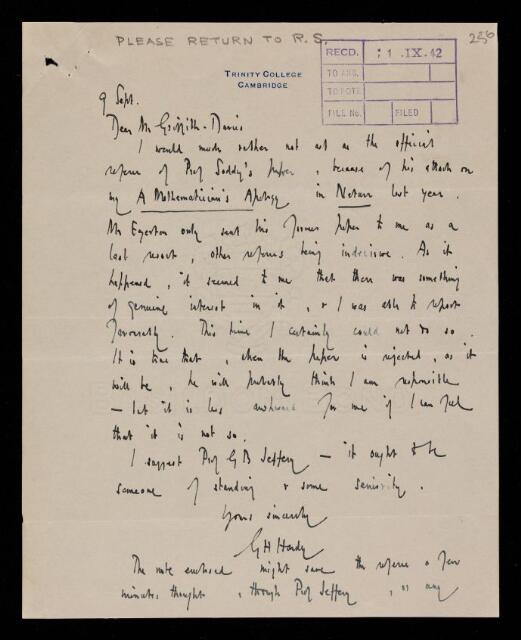 PLEASE RETURN TO R.S.
256
RECD. 11.IX.42
TO ANS.
TO POTE
FILL No. FILED
TRINITY COLLEGE
CAMBRIDGE
9 Sept.
Dear Mr Griffith-Davies
I would much rather not act as the official
referee of Prof Soddy's paper, because of his attack on
my A Mathematician's Apology in Nature last year.
Mr Egerton only sent his former paper to me as a
last resort, other referees being indecisive. As it
happened, it seemed to me that there was something
of genuine interest in it, & I was able to report
favourably. This time I certainly could not do so.
It is true that, when the paper is rejected, as it
will be, he will probably think I am responsible
— but it is less awkward for me if I can feel
that it is not so.
I suggest Prof G B Jeffery — it ought to be
someone of standing & some seniority.
Yours sincerely
G H Hardy
The note enclosed might save the referee a few
minutes thought, though Prof Jeffery, or any